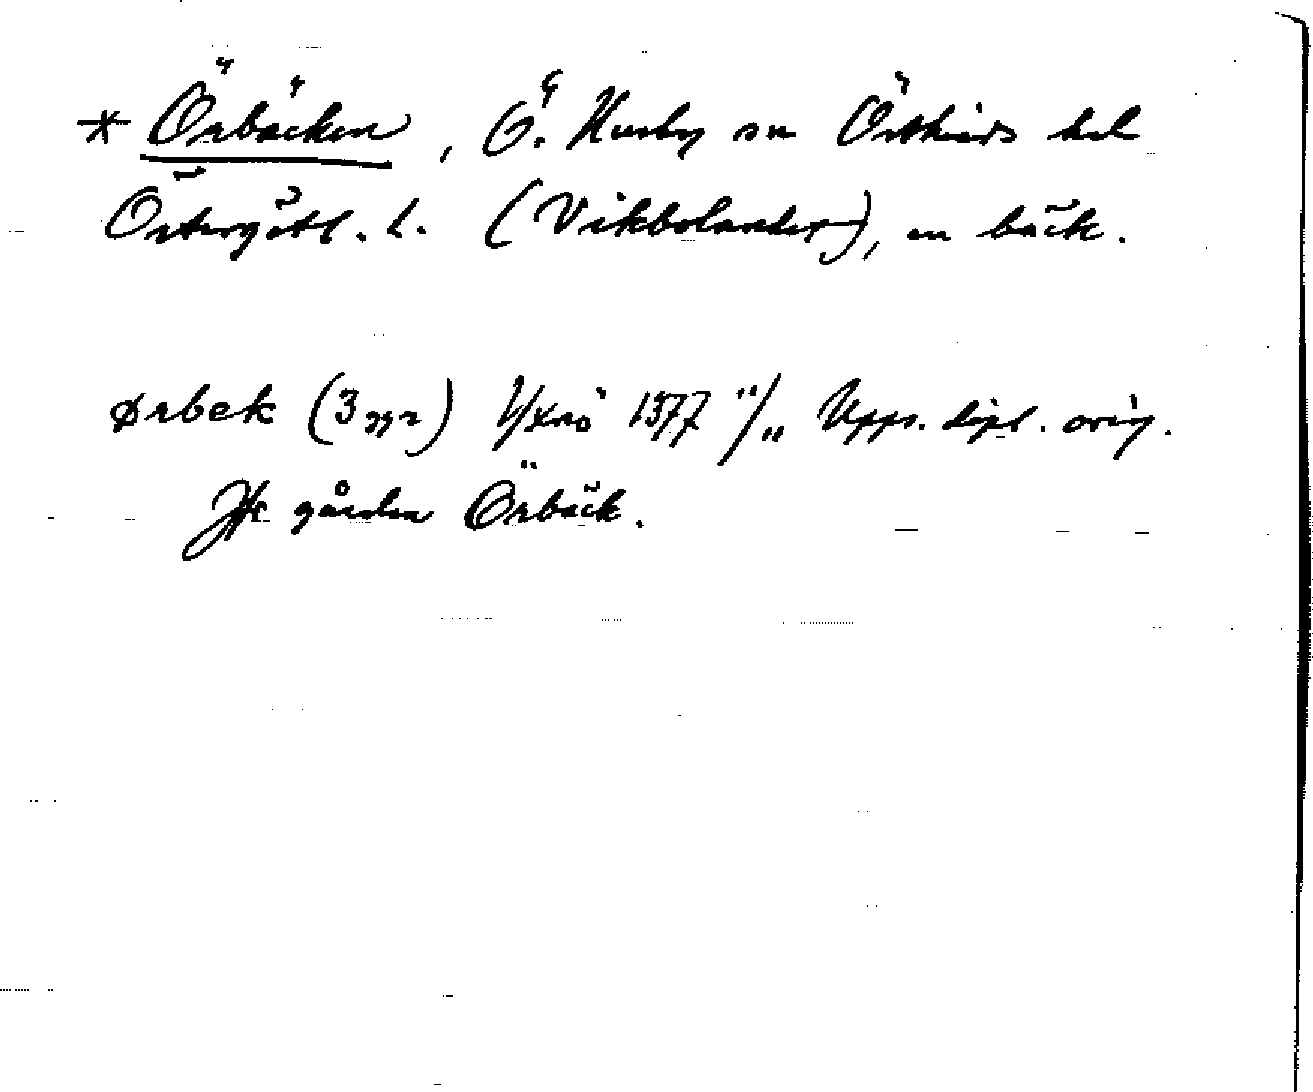 * Örbäcken, Ö. Husby sn Östkinds hd
Östergötl. l. (Vikbolandet), en bäck.
ørbek (3 ggr) Yxnö 1377 "/" Upps. dipl. orig.
Jfr gården Örbäck.